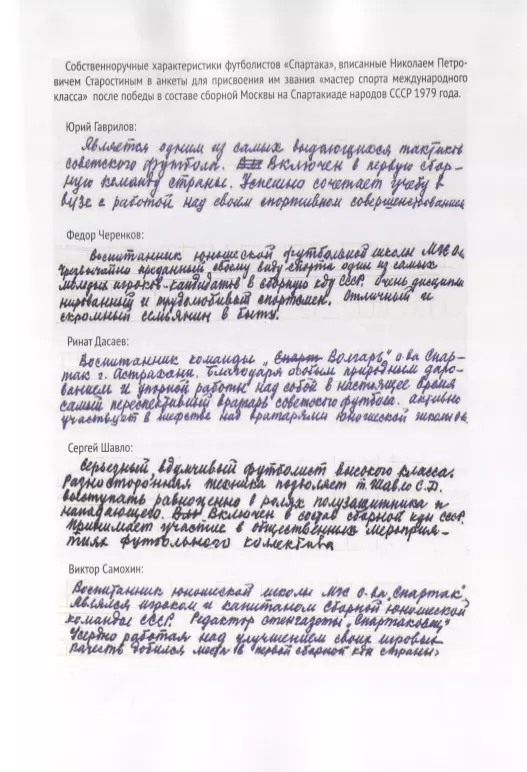 Собственноручные характеристики футболистов «Спартака», вписанные Николаем Петро-
вичем Старостиным в анкеты для присвоения им звания «мастер спорта международного
класса» после победы в составе сборной Москвы на Спартакиаде народов СССР 1979 года.
Юрий Гаврилов:
Является одним из самых выдающихся тактиков
советского футбола. Включен в первую сбор-
ную команду страны. Успешно сочетает учебу в
вузе с работой над своим спортивным совершенствованием
Федор Черенков:
Воспитанник юношеской футбольной школы МГС О-ва
Чрезвычайно преданный своему виду спорта один из самых
молодых игроков-кандидатов в сборную к-ду СССР. Очень дисципли
нированный и трудолюбивый спортсмен. Отличный и
скромный семьянин в быту.
Ринат Дасаев:
Воспитанник команды „Спарт Волгарь" о-ва Спар-
так г. Астрахани. Благодаря особым природным даро-
ваниям и упорной работы над собой в настоящее время
самый перспективный вратарь советского футбола. активно
участвует в шефстве над вратарями юношеской школы
Сергей Шавло:
Серьезный вдумчивый футболист высокого класса.
Разносторонняя техника позволяет т. Шавло С.Д.
выступать равноценно в ролях полузащитника и
нападающего. Включен в состав сборной к-ды СССР.
Принимает участие в общественных мероприя-
тиях футбольного коллектива
Виктор Самохин:
Воспитанник юношеской школы МГС О-ва „Спартак"
Являлся игроком и капитаном сборной юношеской
команды СССР. Редактор стенгазеты „Спартаковец"
Усердно работая над улучшением своих игровых
качеств добился места в первой сборной к-ды страны.